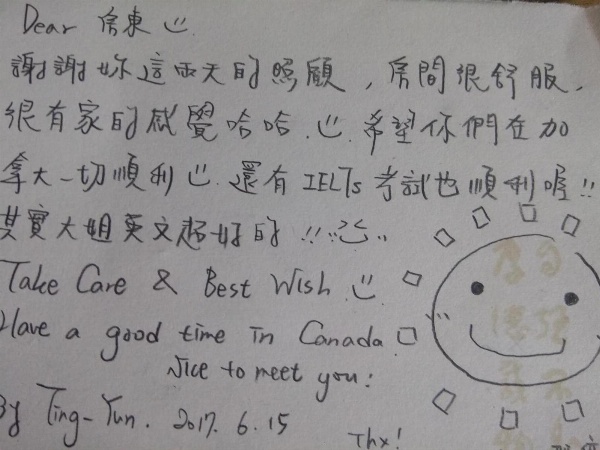 Dear 房東
謝謝妳這兩天的照顧，房間很舒服，
很有家的感覺哈哈. 希望你們在加
拿大一切順利 還有 IELTs 考試也順利喔!!
其實大姐英文超好的 !!
Take Care & Best Wish.
Have a good time in Canada.
Nice to meet you!
By Ting-Yun. 2017. 6. 15
Thx!